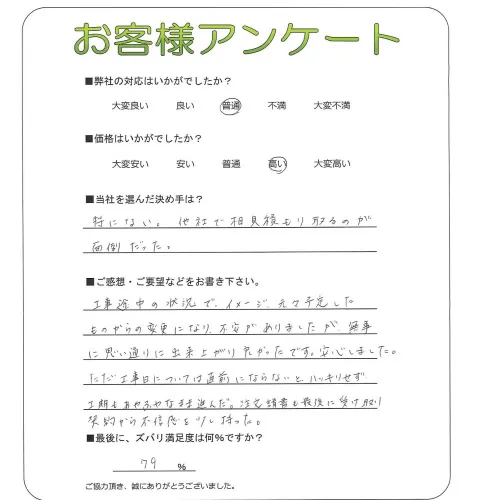 お客様アンケート
■弊社の対応はいかがでしたか？
大変良い 良い 普通 不満 大変不満
■価格はいかがでしたか？
大変安い 安い 普通 高い 大変高い
■当社を選んだ決め手は？
特にない。他社で相見積もり取るのが
面倒だった。
■ご感想・ご要望などをお書き下さい。
工事途中の状況で、イメージ、元々予定した
ものからの変更になり、不安がありましたが、無事
に思い通りに出来上がり良かったです。安心しました。
ただ工事日については直前にならないと、ハッキリせず
工期もあやふやなまま進んだ。注文請書も最後に受け取り
契約から不信感を少し持った。
■最後に、ズバリ満足度は何％ですか？
79 ％
ご協力頂き、誠にありがとうございました。